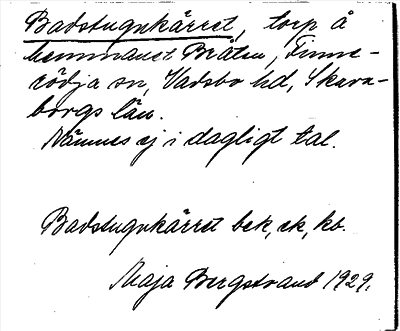 Badstugukärret, torp å
hemmanet Bråten, Finne-
rödja sn, Vadsbo hd, Skara-
borgs län.
Nämnes ej i dagligt tal.
Badstugukärret bek, ek, kb.
Maja Bergstrand 1929.